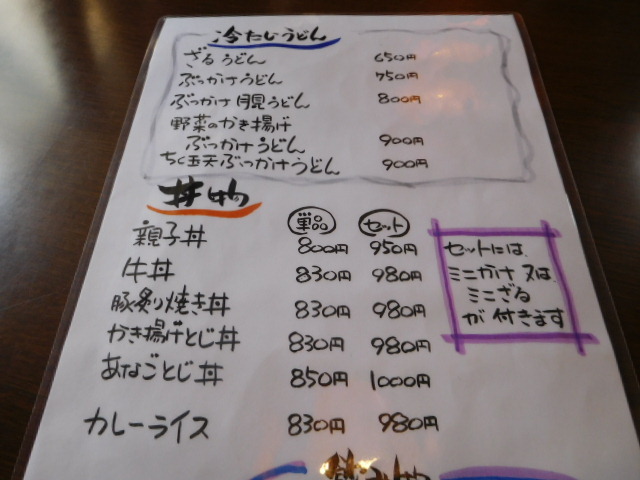 冷たいうどん
ざるうどん 650円
ぶっかけうどん 750円
ぶっかけ月見うどん 800円
野菜のかき揚げ
ぶっかけうどん 900円
ちく玉天ぶっかけうどん 900円
丼もの
単品 セット
親子丼 800円 950円
牛丼 830円 980円
豚炙り焼き丼 830円 980円
かき揚げとじ丼 830円 980円
あなごとじ丼 850円 1000円
カレーライス 830円 980円
セットには、
ミニかけ 又は、
ミニざる
が 付きます